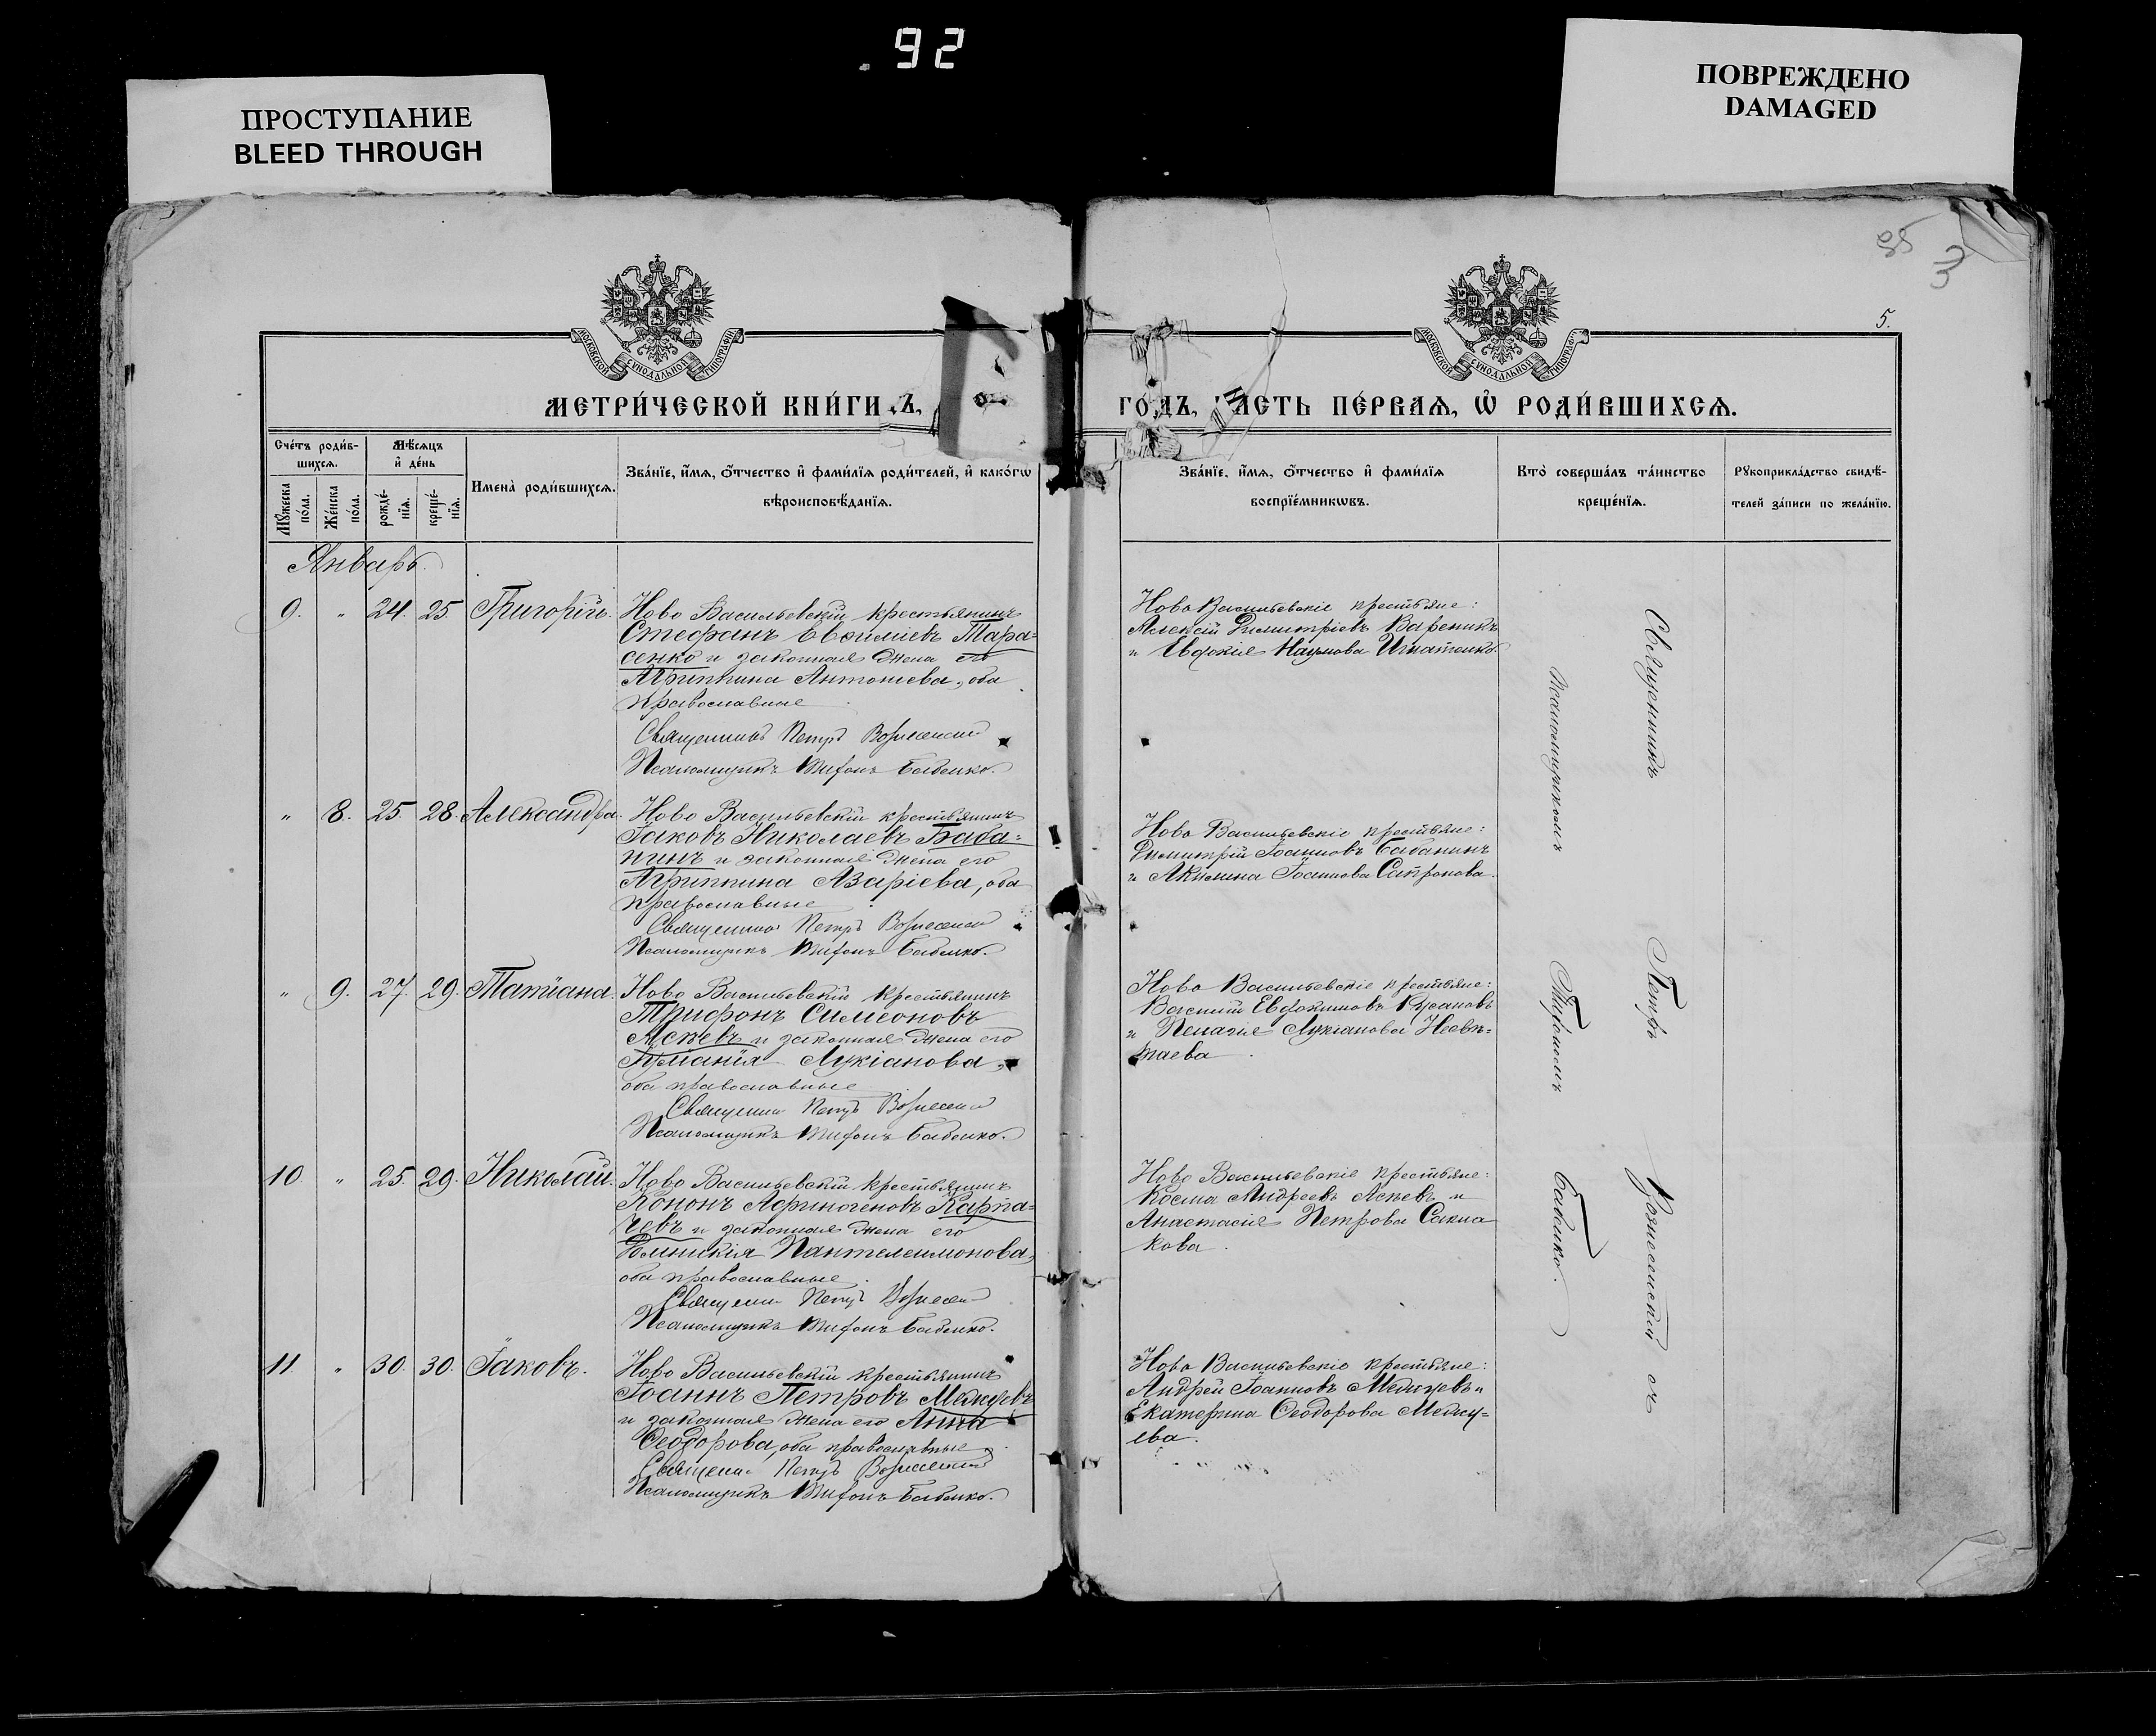 92
ПРОСТУПАНИЕ
BLEED THROUGH
ПОВРЕЖДЕНО
DAMAGED
95
3
5.
МОСКОВСКОЙ СѴНОДАЛЬНОЙ ТИПОГРАФІИ
МОСКОВСКОЙ СѴНОДАЛЬНОЙ ТИПОГРАФІИ
МЕТРИ́ЧЕСКОЙ КНИ́ГИ
ГО́ДЪ, ЧАСТЬ ПЕ́РВАѦ, Ѽ РОДИ́ВШИХСѦ.
Сче́тъ роди́в-
шихсѧ.
Мѣ́сѧцъ
и҆ де́нь
Мꙋ́жеска
по́ла.
Же́нска
по́ла.
рожде́-
нїѧ.
креще́-
нїѧ.
Имена̀ роди́вшихсѧ.
Зва́нїе, и҆́мѧ, ѻ҆́тчество и҆ фами́лїѧ роди́телей, и҆ како́гѡ
вѣроисповѣ́данїѧ.
Зва́нїе, и҆́мѧ, ѻ҆́тчество и҆ фами́лїѧ
воспрїе́мникѡвъ.
Кто̀ соверша́лъ та́инство
креще́нїѧ.
Рꙋкоприкла́дство свидѣ́-
телей за́писи по жела́нїю.
Январь.
9. " 24. 25. Григорій.
Ново Васильевскій крестьянинъ
Стефанъ Евѳиміевъ Тара=
сенко и законная жена его
Агриппина Антоніева, оба
православные
Священникъ Петръ Вознесенскій
Псаломщикъ Тифонъ Бабенко.
Ново Васильевскіе крестьяне:
Алексій Димитріевъ Вареникъ
и Евдокія Наумова Игнатенко
" 8. 25. 28. Александра.
Ново Васильевскій крестьянинъ
Іаковъ Николаевъ Баба=
нинъ и законная жена его
Агриппина Азаріева, оба
православные
Священникъ Петръ Вознесенскій
Псаломщикъ Тифонъ Бабенко.
Ново Васильевскіе крестьяне:
Димитрій Іоанновъ Бабанинъ
и Акилина Іоаннова Сапронова.
" 9. 27. 29. Татіана.
Ново Васильевскій крестьянинъ
Трифонъ Симеоновъ
и законная жена его
Лукіанова,
оба православные
Священникъ Петръ Вознесенскій
Псаломщикъ Тифонъ Бабенко.
Ново Васильевскіе крестьяне:
Василій Евдокимовъ
и Пелагія Лукіанова
10 " 25. 29. Николай.
Ново Васильевскій крестьянинъ
Кононъ Афиногеновъ Карпа=
чевъ и законная жена его
Пантелеимонова,
оба православные
Священникъ Петръ Вознесенскій
Псаломщикъ Тифонъ Бабенко.
Ново Васильевскіе крестьяне:
Косма Андреевъ и
Анастасія Петрова
кова.
11. " 30. 30. Іаковъ.
Ново Васильевскій крестьянинъ
Іоаннъ Петровъ
и законная жена его Анна
Ѳеодорова, оба православные
Священникъ Петръ Вознесенскій
Псаломщикъ Тифонъ Бабенко.
Ново Васильевскіе крестьяне:
Андрей Іоанновъ и
Екатерина Ѳеодорова
ева.
Священникъ Петръ Вознесенскій съ
Псаломщикомъ Бабенко.